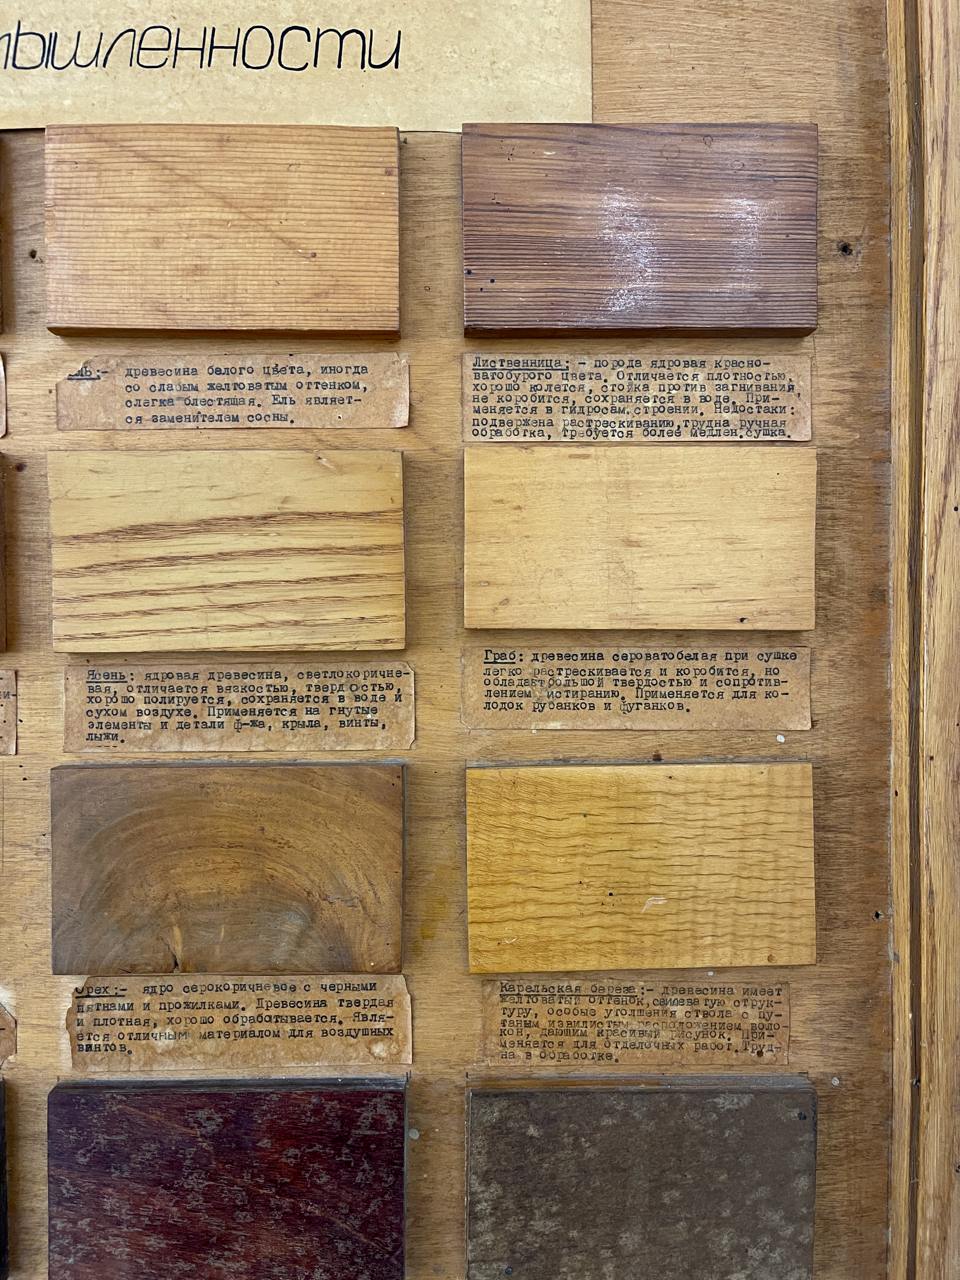 мышленности
ль:- древесина белого цвета, иногда
со слабым желтоватым оттенком,
слегка блестящая. Ель являет-
ся заменителем сосны.
Лиственница: - порода ядровая красно-
ватобурого цвета. Отличается плотностью,
хорошо колется, стойка против загнивания,
не коробится, сохраняется в воде. При-
меняется в гидросам.строении. Недостаки:
подвержена растрескиванию,трудна ручная
обработка, требуется более медлен.сушка.
Ясень: ядровая древесина, светлокоричне-
вая, отличается вязкостью, твердостью,
хорошо полируется, сохраняется в воде и
сухом воздухе. Применяется на гнутые
элементы и детали ф-жа, крыла, винты,
лыжи.
Граб: древесина сероватобелая при сушке
легко растрескивается и коробится, но
обладает большой твердостью и сопротив-
лением истиранию. Применяется для ко-
лодок рубанков и фуганков.
и-
Орех:- ядро серокоричневое с черными
пятнами и прожилками. Древесина твердая
и плотная, хорошо обрабатывается. Явля-
ется отличным материалом для воздушных
винтов.
Карельская береза:- древесина имеет
желтоватый оттенок, струк-
туру, особые утолщения ствола с пу-
таным извилистым расположением воло-
кон, дающим красивый рисунок. При-
меняется для отделочных работ. Труд-
на в обработке.